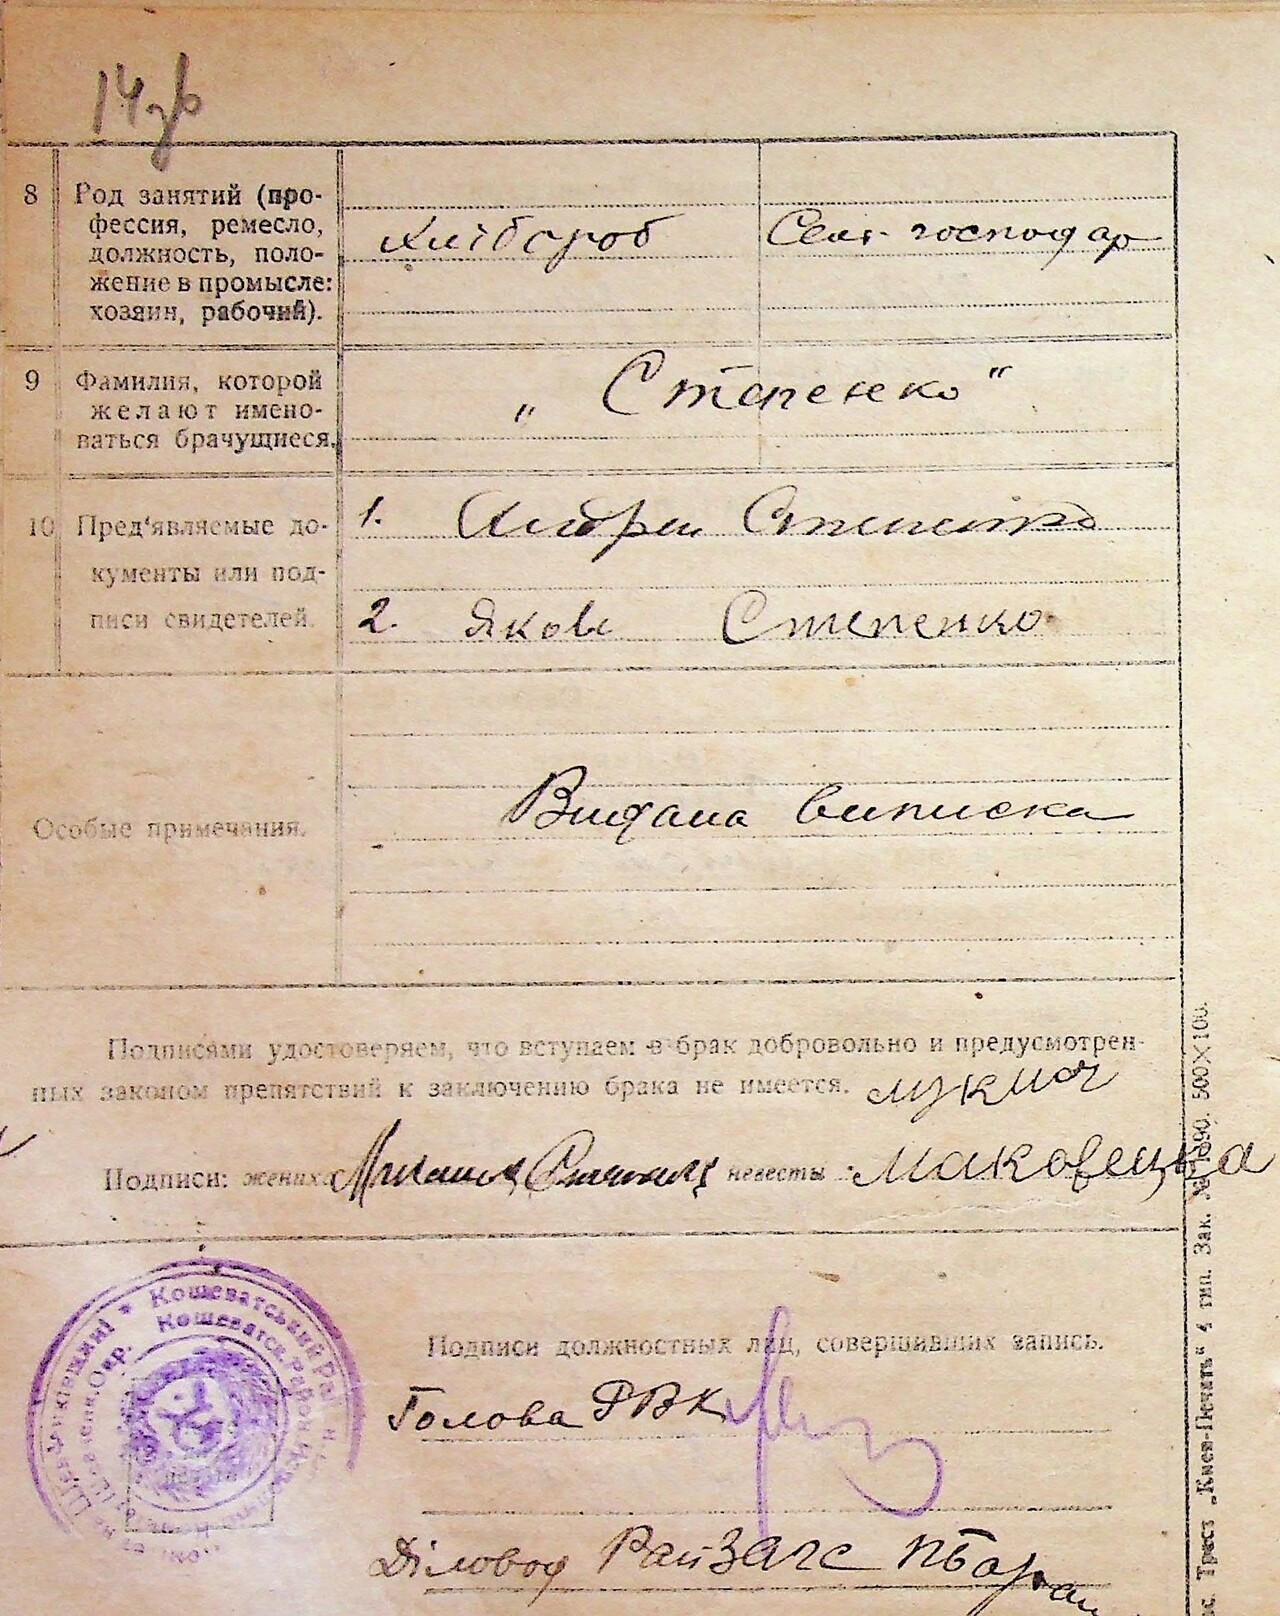 14зв
8 Род занятий (про-
фессия, ремесло,
должность, поло-
жение в промысле:
хозяин, рабочий).
Хлібороб Сель-господар
9 Фамилия, которой
желают имено-
ваться брачущиеся.
„ Степенко “
10 Пред‘являемые до-
кументы или под-
писи свидетелей.
1. Андрей Степенко
2. Яков Степенко
Особые примечания.
Видана виписка
Подписями удостоверяем, что вступаем в брак добровольно и предусмотрен-
ных законом препятствий к заключению брака не имеется.
Подписи: жениха невесты Маковецка
Кошеватський Рай
Кошеватск. Район
Шевченківщині
Окр.
Подписи должностных лиц, совершивших запись.
Голова РВК
Діловод РайЗАГС
Трест „Киев-Печать“ 4 тип. Зак. 500×100.